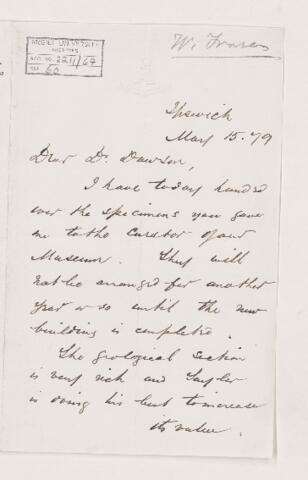 McGILL UNIVERSITY
ARCHIVES
ACC. NO. 2211/67
REF. 60
W. Fraser
Ipswich
May 15. 79
Dear Dr. Dawson,
I have today handed
over the specimens you gave
me to the Curator of our
Museum. They will
not be arranged for another
year or so until the new
building is completed.
The geological section
is very rich and Taylor
is doing his best to increase
its value.